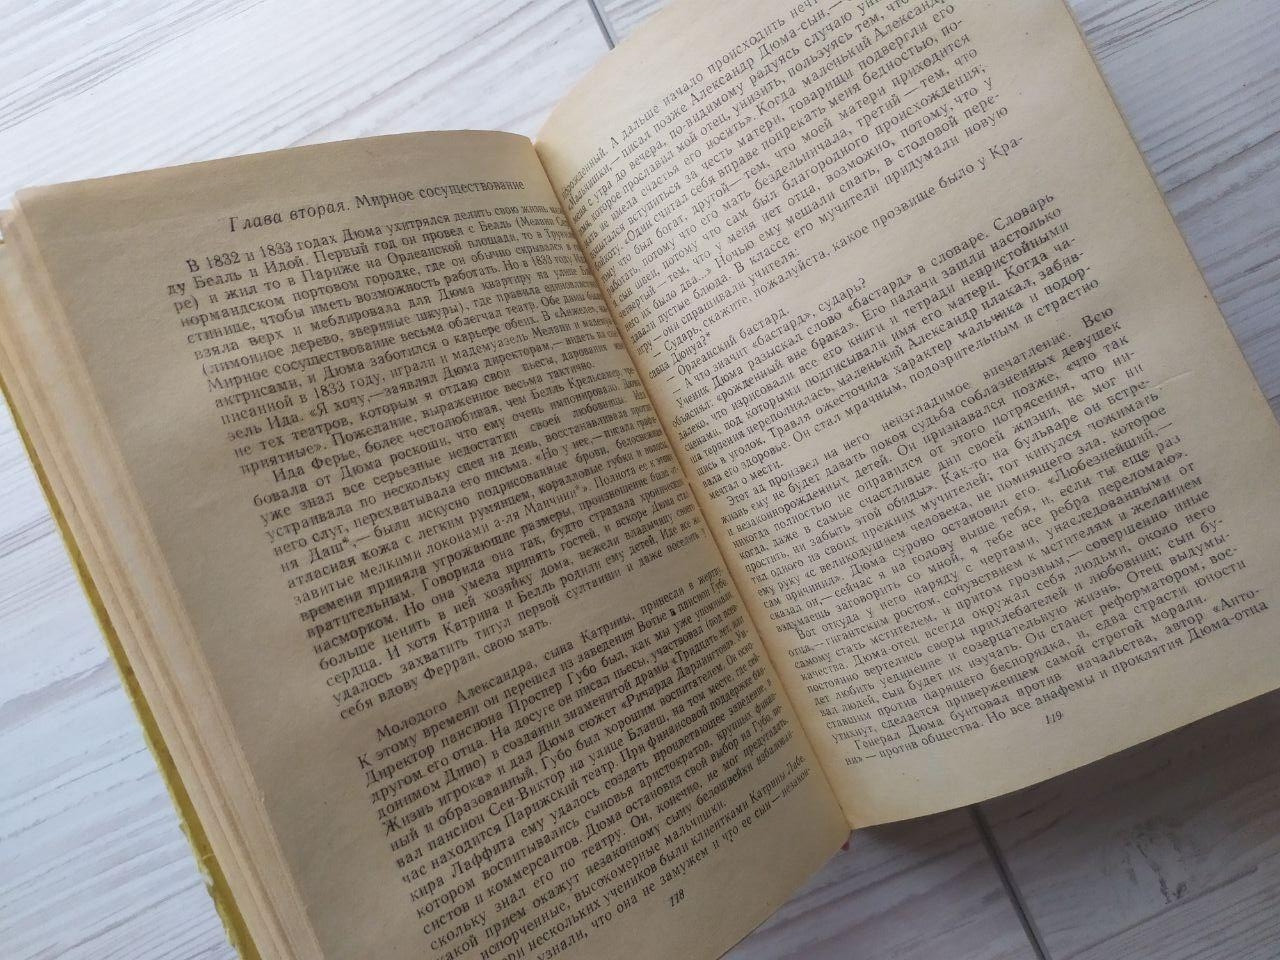 Глава вторая. Мирное сосуществование
В 1832 и 1833 годах Дюма ухитрялся делить свою жизнь
ду Белль и Идой. Первый год он провел с Белль (Мелани
ре) и жил то в Париже на Орлеанской площади, то в
нормандском портовом городке, где он обычно скрывался в
стинице, чтобы иметь возможность работать. Но в 1833 году
взяла верх и меблировала для Дюма квартиру на улице
(лимонное дерево, звериные шкуры), где правила
Мирное сосуществование весьма облегчал театр. Обе дамы были
актрисами, и Дюма заботился о карьере обеих. В «Анжеле»,
писанной в 1833 году, играли и мадемуазель Мелани и
зель Ида. «Я хочу,— заявлял Дюма директорам,— видеть на
не тех театров, которым я отдаю свои пьесы, дарования
приятные». Пожелание, выраженное весьма тактично.
Ида Ферье, более честолюбивая, чем Белль Крельсамер,
бовала от Дюма роскоши, что ему очень импонировало. Дюма
уже знал все серьезные недостатки своей любовницы. Ида
устраивала по нескольку сцен на день, восстанавливала против
него слуг, перехватывала его письма. «Но у нее,— писала графи-
ня Даш*,— были искусно подрисованные брови, белоснежная
атласная кожа с легким румянцем, коралловые губки и волосы,
завитые мелкими локонами а-ля Манчини*». Полнота ее к этому
времени приняла угрожающие размеры, произношение было
вратительным. Говорила она так, будто страдала хроническим
насморком. Но она умела принять гостей, и вскоре Дюма стал
больше ценить в ней хозяйку дома, нежели владычицу своего
сердца. И хотя Катрина и Белль родили ему детей, Иде все же
удалось захватить титул первой султанши и даже поселить у
себя вдову Ферран, свою мать.
Молодого Александра, сына Катрины, принесли в жертву.
К этому времени он перешел из заведения Вотье в пансион Губо.
Директор пансиона Проспер Губо был, как мы уже упоминали,
другом его отца. На досуге он писал пьесы, участвовал (под псев-
донимом Дино) в создании знаменитой драмы «Тридцать лет, или
Жизнь игрока» и дал Дюма сюжет «Ричарда Дарлингтона». Ум-
ный и образованный, Губо был хорошим воспитателем. Он осно-
вал пансион Сен-Виктор на улице Бланш, на том месте, где сей-
час находится Парижский театр. При финансовой поддержке бан-
кира Лаффита ему удалось создать процветающее заведение, в
котором воспитывались сыновья аристократов, крупных финан-
систов и коммерсантов. Дюма остановил свой выбор на Губо, по-
скольку знал его по театру. Он, конечно, не мог предугадать,
какой прием окажут незаконному сыну белошвейки избалован-
испорченные, высокомерные мальчишки.
ери нескольких учеников были клиентками Катрины Лабе.
узнали, что она не замужем и что ее сын — незакон-
118
норожденный. А дальше начало происходить нечто
мальчишки,— писал позже Александр Дюма-сын,—
с утра до вечера, по-видимому радуясь случаю
которое прославил мой отец, унизить, пользуясь тем, что
не имела счастья его носить». Когда маленький Александр
пытался вступиться за честь матери, товарищи подвергли его
«Один считал себя вправе попрекать меня бедностью, по-
был богат, другой — тем, что моей матери приходится
потому что его мать бездельничала, третий — тем, что
сын швеи, потому что сам был благородного происхождения;
четвертый — тем, что у меня нет отца, возможно, потому, что у
было два...» Ночью ему мешали спать, в столовой пере-
давали пустые блюда. В классе его мучители придумали новую
игру — они спрашивали учителя:
— Сударь, скажите, пожалуйста, какое прозвище было у кра-
савца Дюнуа?*
— Орлеанский бастард.
— А что значит «бастард», сударь?
Ученик Дюма разыскал слово «бастард» в словаре. Словарь
объяснял: «рожденный вне брака». Его палачи зашли настолько
далеко, что изрисовали все его книги и тетради непристойными
сценами, под которыми подписывали имя его матери. Когда ча-
ша терпения переполнялась, маленький Александр плакал, забив-
шись в уголок. Травля ожесточила характер мальчика и подор-
вала его здоровье. Он стал мрачным, подозрительным и страстно
мечтал о мести.
Этот ад произвел на него неизгладимое впечатление. Всю
жизнь ему не будет давать покоя судьба соблазненных девушек
и незаконнорожденных детей. Он признавался позже, «что так
никогда полностью не оправился от этого потрясения, что ни-
когда, даже в самые счастливые дни своей жизни, не мог ни
простить, ни забыть этой обиды». Как-то на бульваре он встре-
тил одного из своих прежних мучителей; тот кинулся пожимать
ему руку «с великодушием человека, не помнящего зла, которое
сам причинил». Дюма сурово остановил его. «Любезнейший,—
сказал он,— сейчас я на голову выше тебя, и, если ты еще раз
вздумаешь заговорить со мной, я тебе все ребра переломаю».
Вот откуда у него наряду с чертами, унаследованными от
отца,— гигантским ростом, сочувствием к мстителям и желанием
самому стать мстителем, и притом грозным,— совершенно иные
качества. Дюма-отец всегда окружал себя людьми, около него
постоянно вертелись своры прихлебателей и любовниц; сын бу-
дет любить уединение и созерцательную жизнь. Отец выдумы-
вал людей, сын будет их изучать. Он станет реформатором, вос-
ставшим против парящего беспорядка, и, едва страсти юности
утихнут, сделается приверженцем самой строгой морали.
Генерал Дюма бунтовал против начальства, автор «Анто-
ни» — против общества. Но все анафемы и проклятия Дюма-отца
119